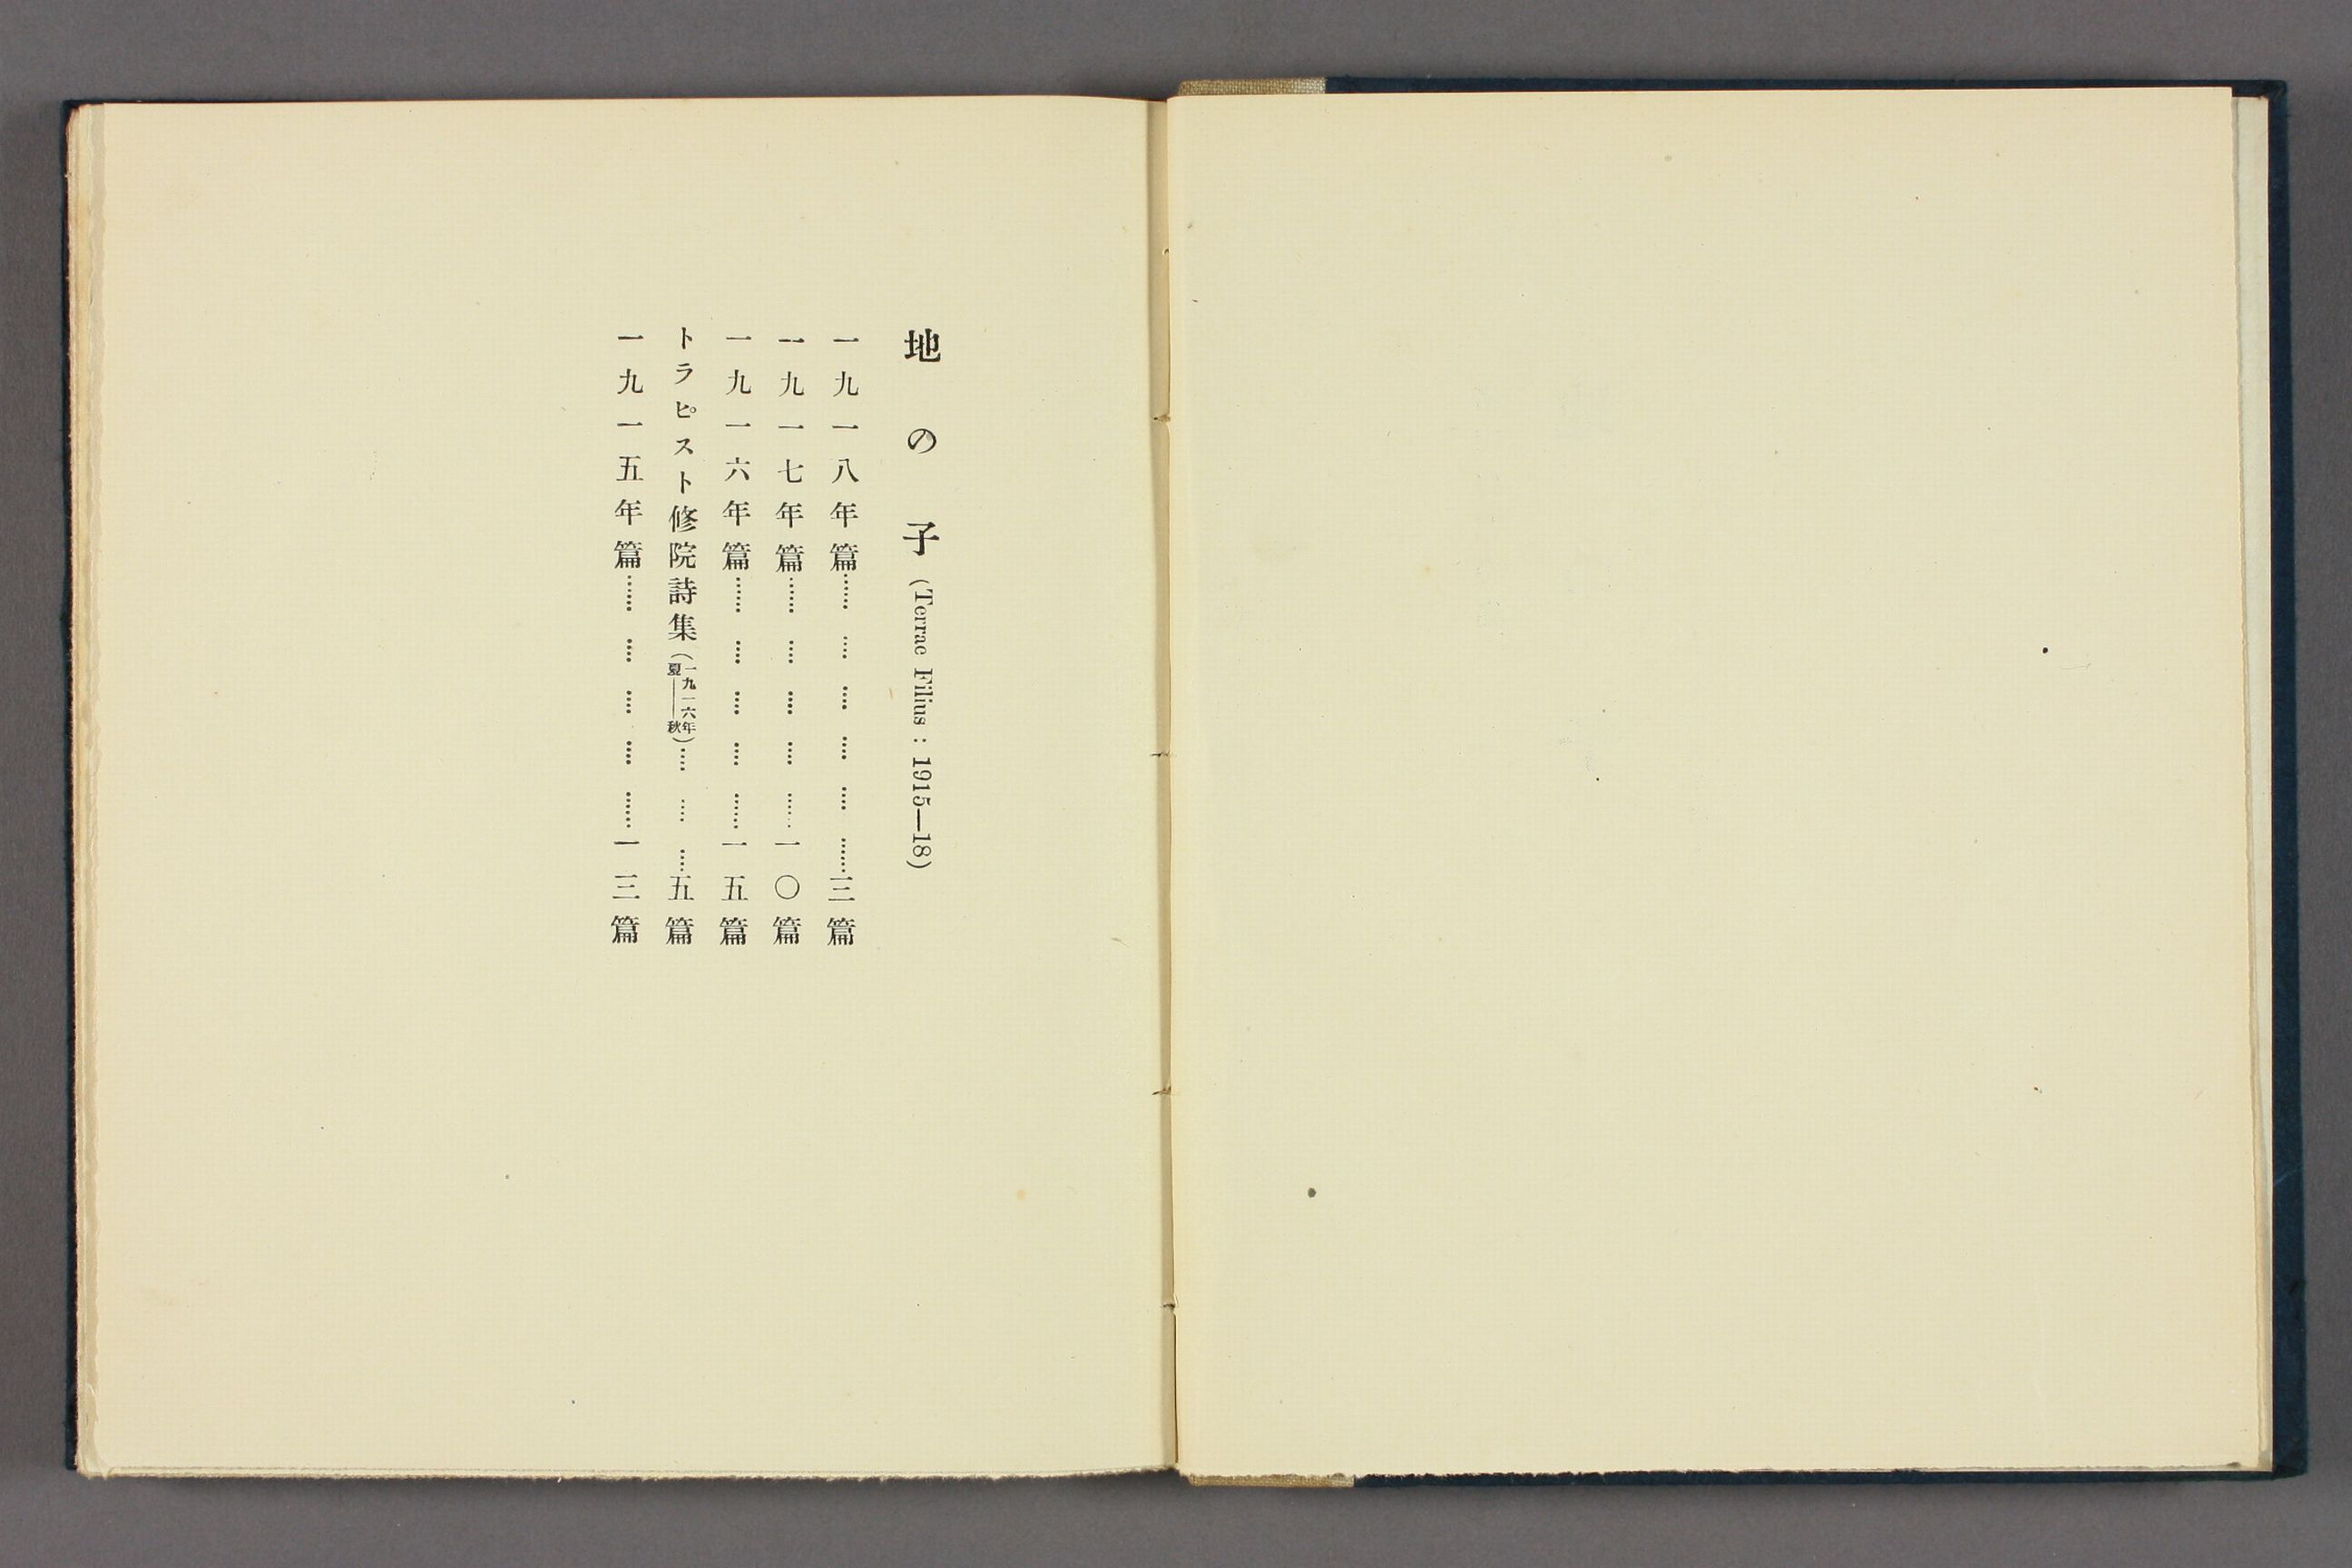 地の子 (Terrae Filius : 1915—18)
一九一八年篇…… …… …… …… …… ……三篇
一九一七年篇…… …… …… …… ……一〇篇
一九一六年篇…… …… …… …… ……一五篇
トラピスト修院詩集(一九一六年夏——秋)…… …… ……五篇
一九一五年篇…… …… …… …… ……一三篇